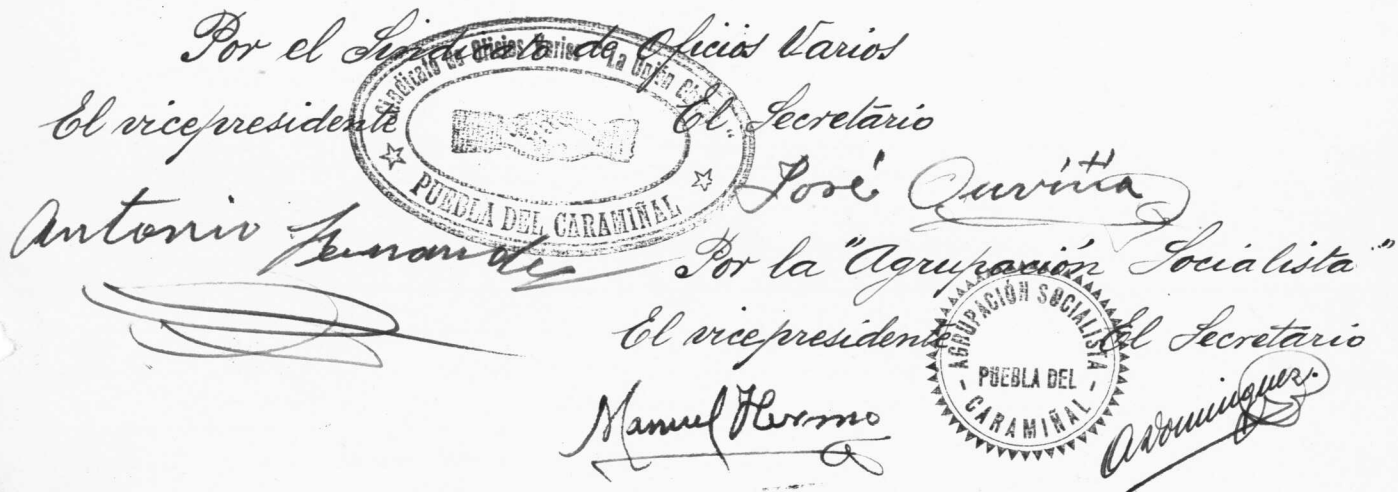 Por el Sindicato de Oficios Varios
El vicepresidente
El Secretario
Sindicato de Oficios Varios "La Unión
PUEBLA DEL CARAMIÑAL
Antonio Fernandez
José
Por la "Agrupación Socialista"
El vicepresidente
El Secretario
AGRUPACIÓN SOCIALISTA
- PUEBLA DEL -
CARAMIÑAL
Manuel Hermo
A Dominguez.